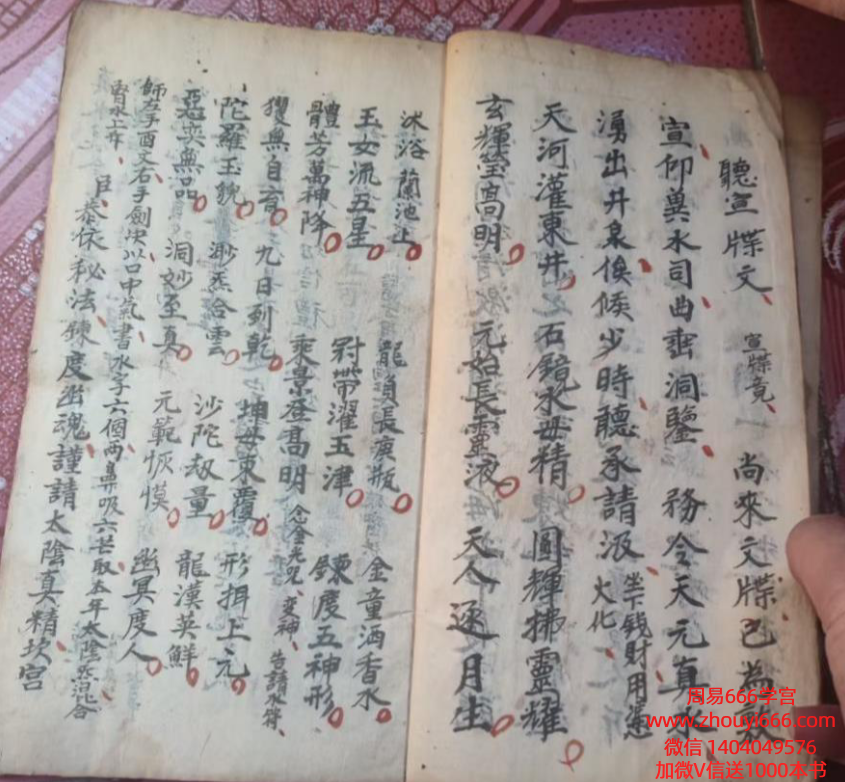 聽宣牒文 宣牒竟 尚來文牒已為敷
宣仰奠水司曲垂洞鑒 務令天元真水
湧出井泉俟候少時聽承請汲 坐下錢財用憑火化
天河灌東井 石鏡水母精 圓輝拂靈耀
玄輝瑩高明 元始長靈液 天人逐月生
沐浴蘭池上 龍負長庚瓶 金童洒香水
玉女流五星 冠帶濯玉津 鍊度五神形
體芳萬神降 乘景登高明 念金光咒、变神、告請水符、
獲無自育 九日列乾 坤母東覆 形揖上元
陀羅玉貌 渺炁合雲 沙陀劫量 龍漢英鮮
惡奕無品 洞妙至真 元範恢漠 幽冥度人
師左手酉文右手劍决以口中氣書水字六個两鼻吸六芒取本年太陰炁混合
臣恭依秘法鍊度幽魂謹請太陰真精坎宮
周易666学宫
www.zhouyi666.com
微信 1404049576
加微V信送1000本书